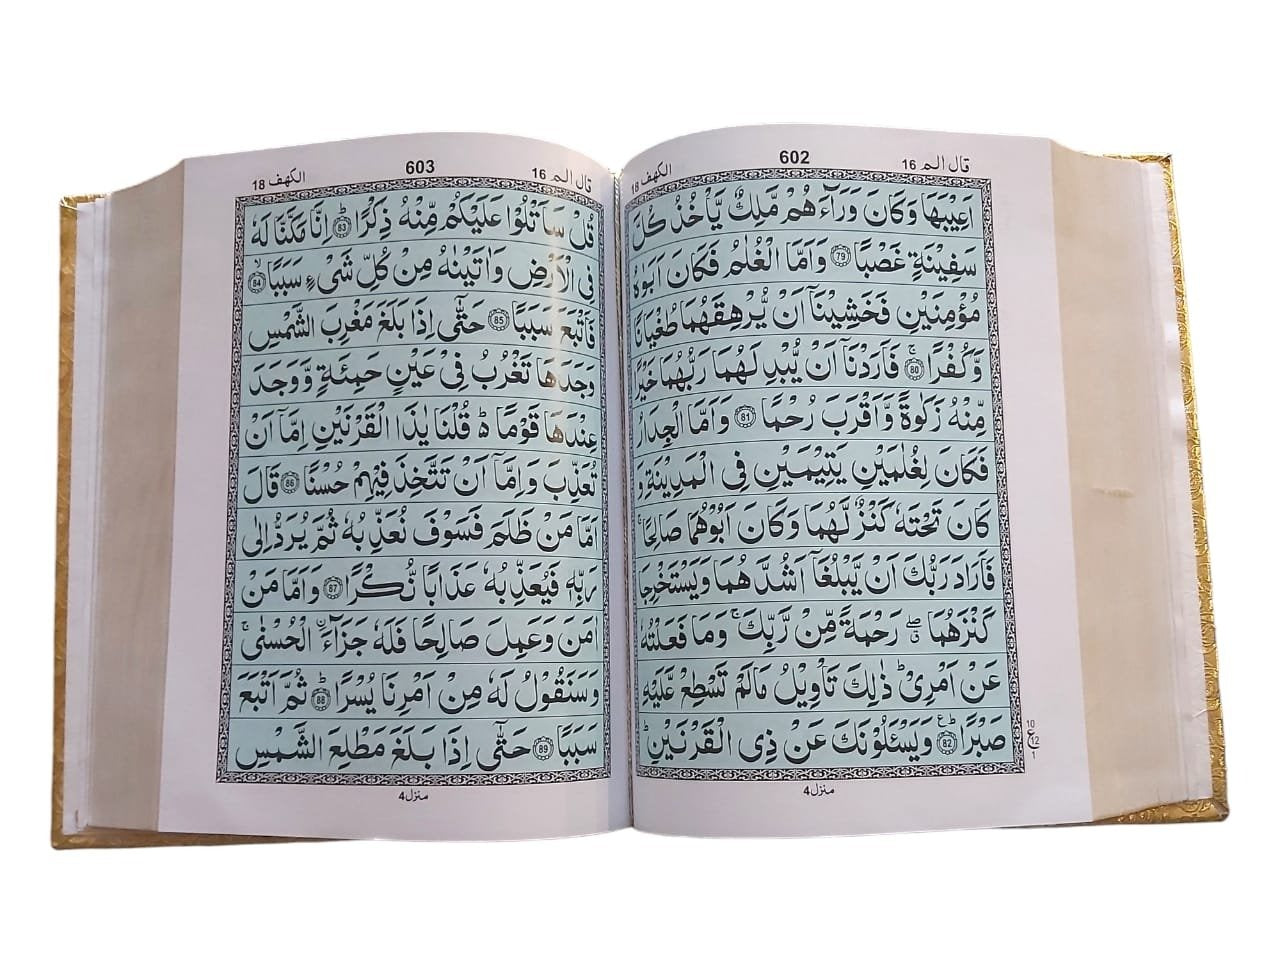 قال الم 16
602
الكهف 18
اَعِيْبَهَا وَكَانَ وَرَآءَهُمْ مَّلِكٌ يَّاْخُذُ كُلَّ
سَفِيْنَةٍ غَصْبًا ﴿79﴾ وَاَمَّا الْغُلٰمُ فَكَانَ اَبَوٰهُ
مُؤْمِنَيْنِ فَخَشِيْنَآ اَنْ يُّرْهِقَهُمَا طُغْيَانًا
وَّكُفْرًا ۚ﴿80﴾ فَاَرَدْنَآ اَنْ يُّبْدِلَهُمَا رَبُّهُمَا خَيْرًا
مِّنْهُ زَكٰوةً وَّاَقْرَبَ رُحْمًا ﴿81﴾ وَاَمَّا الْجِدَارُ
فَكَانَ لِغُلٰمَيْنِ يَتِيْمَيْنِ فِى الْمَدِيْنَةِ وَ
كَانَ تَحْتَهٗ كَنْزٌ لَّهُمَا وَكَانَ اَبُوْهُمَا صَالِحًا ۚ
فَاَرَادَ رَبُّكَ اَنْ يَّبْلُغَآ اَشُدَّهُمَا وَيَسْتَخْرِجَا
كَنْزَهُمَا ۖ رَحْمَةً مِّنْ رَّبِّكَ ۚ وَمَا فَعَلْتُهٗ
عَنْ اَمْرِىْ ؕ ذٰلِكَ تَاْوِيْلُ مَا لَمْ تَسْطِعْ عَّلَيْهِ
صَبْرًا ؕ﴿82﴾ وَيَسْـَٔلُوْنَكَ عَنْ ذِى الْقَرْنَيْنِ ؕ
10
ع 12
1
منزل 4
قال الم 16
603
الكهف 18
قُلْ سَاَتْلُوْا عَلَيْكُمْ مِّنْهُ ذِكْرًا ؕ﴿83﴾ اِنَّا مَكَّنَّا لَهٗ
فِى الْاَرْضِ وَاٰتَيْنٰهُ مِنْ كُلِّ شَىْءٍ سَبَبًا ۙ﴿84﴾
فَاَتْبَعَ سَبَبًا ﴿85﴾ حَتّٰٓى اِذَا بَلَغَ مَغْرِبَ الشَّمْسِ
وَجَدَهَا تَغْرُبُ فِىْ عَيْنٍ حَمِئَةٍ وَّوَجَدَ
عِنْدَهَا قَوْمًا ؕ قُلْنَا يٰذَا الْقَرْنَيْنِ اِمَّآ اَنْ
تُعَذِّبَ وَاِمَّآ اَنْ تَتَّخِذَ فِيْهِمْ حُسْنًا ﴿86﴾ قَالَ
اَمَّا مَنْ ظَلَمَ فَسَوْفَ نُعَذِّبُهٗ ثُمَّ يُرَدُّ اِلٰى
رَبِّهٖ فَيُعَذِّبُهٗ عَذَابًا نُّكْرًا ﴿87﴾ وَاَمَّا مَنْ
اٰمَنَ وَعَمِلَ صَالِحًا فَلَهٗ جَزَآءَ ۨالْحُسْنٰى ۚ
وَسَنَقُوْلُ لَهٗ مِنْ اَمْرِنَا يُسْرًا ؕ﴿88﴾ ثُمَّ اَتْبَعَ
سَبَبًا ﴿89﴾ حَتّٰٓى اِذَا بَلَغَ مَطْلِعَ الشَّمْسِ
منزل 4